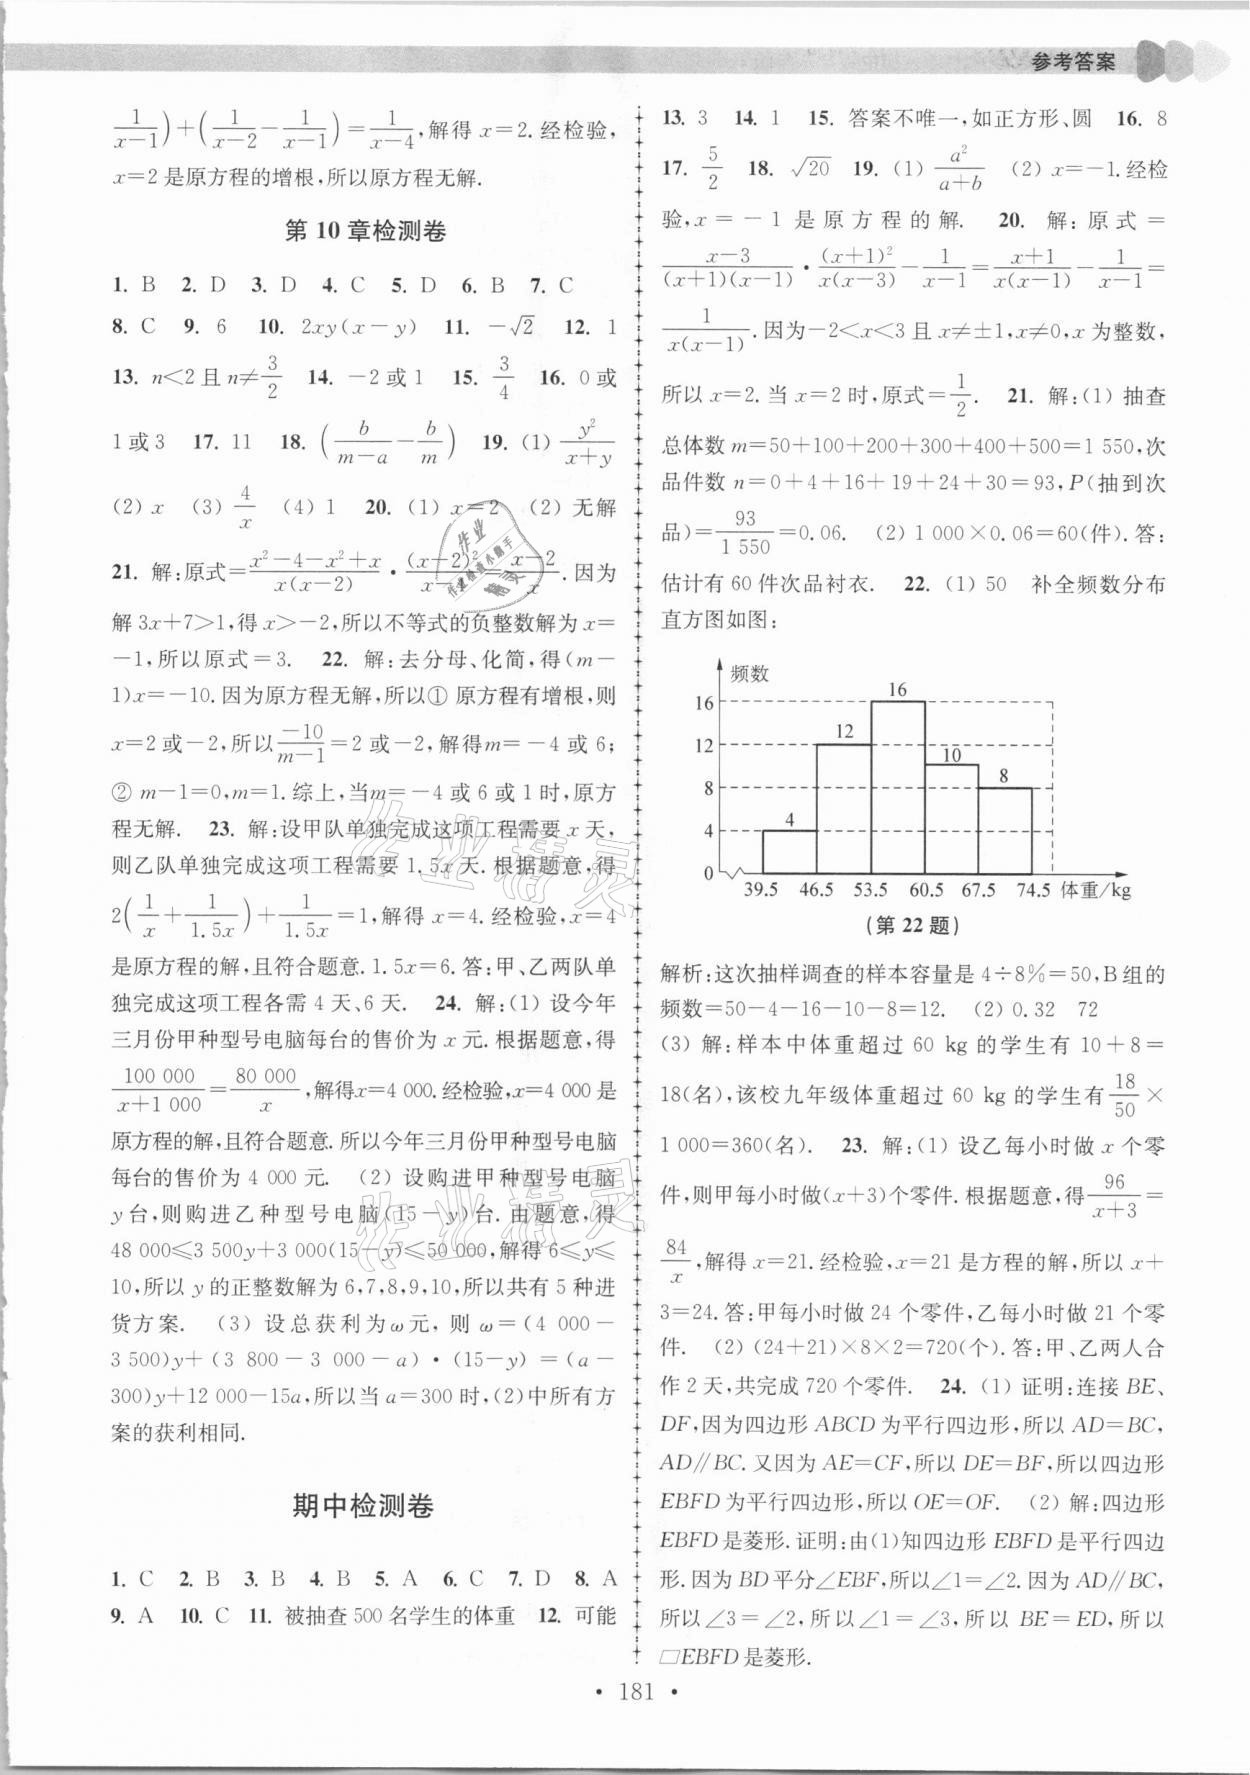 参考答案
1/(x−1))+(1/(x−2)−1/(x−1))=1/(x−4),解得 x=2.经检验,
x=2 是原方程的增根,所以原方程无解.
第 10 章检测卷
1. B 2. D 3. D 4. C 5. D 6. B 7. C
8. C 9. 6 10. 2xy(x−y) 11. −√2 12. 1
13. n<2 且 n≠3/2 14. −2 或 1 15. 3/4 16. 0 或
1 或 3 17. 11 18. (b/(m−a)−b/m) 19. (1) y²/(x+y)
(2) x (3) 4/x (4) 1 20. (1) x=2 (2) 无解
21. 解:原式=(x²−4−x²+x)/(x(x−2))·(x−2)²/(x−4)=(x−2)/x.因为
解 3x+7>1,得 x>−2,所以不等式的负整数解为 x=
−1,所以原式=3. 22. 解:去分母、化简,得(m−
1)x=−10.因为原方程无解,所以① 原方程有增根,则
x=2 或−2,所以−10/(m−1)=2 或−2,解得m=−4 或 6;
② m−1=0,m=1.综上,当m=−4 或 6 或 1 时,原方
程无解. 23. 解:设甲队单独完成这项工程需要 x 天,
则乙队单独完成这项工程需要 1.5x 天.根据题意,得
2(1/x+1/1.5x)+1/1.5x=1,解得 x=4.经检验,x=4
是原方程的解,且符合题意.1.5x=6.答:甲、乙两队单
独完成这项工程各需 4 天、6 天. 24. 解:(1) 设今年
三月份甲种型号电脑每台的售价为 x 元.根据题意,得
100 000/(x+1 000)=80 000/x,解得x=4 000.经检验,x=4 000 是
原方程的解,且符合题意.所以今年三月份甲种型号电脑
每台的售价为 4 000 元. (2) 设购进甲种型号电脑
y 台,则购进乙种型号电脑(15−y)台.由题意,得
48 000≤3 500y+3 000(15−y)≤50 000,解得 6≤y≤
10,所以 y 的正整数解为 6,7,8,9,10,所以共有 5 种进
货方案. (3) 设总获利为ω元,则 ω=(4 000−
3 500)y+(3 800−3 000−a)·(15−y)=(a−
300)y+12 000−15a,所以当 a=300 时,(2)中所有方
案的获利相同.
期中检测卷
1. C 2. B 3. B 4. B 5. A 6. C 7. D 8. A
9. A 10. C 11. 被抽查 500 名学生的体重 12. 可能
13. 3 14. 1 15. 答案不唯一,如正方形、圆 16. 8
17. 5/2 18. √20 19. (1) a²/(a+b) (2) x=−1.经检
验,x=−1 是原方程的解. 20. 解:原式=
(x−3)/((x+1)(x−1))·(x+1)²/(x(x−3))−1/(x−1)=(x+1)/(x(x−1))−1/(x−1)=
1/(x(x−1)).因为−2<x<3 且 x≠±1,x≠0,x 为整数,
所以 x=2.当 x=2 时,原式=1/2. 21. 解:(1) 抽查
总体数 m=50+100+200+300+400+500=1 550,次
品件数 n=0+4+16+19+24+30=93,P(抽到次
品)=93/1 550=0.06. (2) 1 000×0.06=60(件).答:
估计有 60 件次品衬衣. 22. (1) 50 补全频数分布
直方图如图:
频数
16
16
12
12
10
8
8
4
4
0
39.5 46.5 53.5 60.5 67.5 74.5 体重/kg
(第 22 题)
解析:这次抽样调查的样本容量是 4÷8%=50,B 组的
频数=50−4−16−10−8=12. (2) 0.32 72
(3) 解:样本中体重超过 60 kg 的学生有 10+8=
18(名),该校九年级体重超过 60 kg 的学生有18/50×
1 000=360(名). 23. 解:(1) 设乙每小时做 x 个零
件,则甲每小时做(x+3)个零件.根据题意,得96/(x+3)=
84/x,解得 x=21.经检验,x=21 是方程的解,所以 x+
3=24.答:甲每小时做 24 个零件,乙每小时做 21 个零
件. (2) (24+21)×8×2=720(个).答:甲、乙两人合
作 2 天,共完成 720 个零件. 24. (1) 证明:连接 BE、
DF,因为四边形 ABCD 为平行四边形,所以 AD=BC,
AD∥BC.又因为 AE=CF,所以 DE=BF,所以四边形
EBFD 为平行四边形,所以 OE=OF. (2) 解:四边形
EBFD 是菱形.证明:由(1)知四边形 EBFD 是平行四边
形.因为 BD 平分∠EBF,所以∠1=∠2.因为 AD∥BC,
所以∠3=∠2,所以∠1=∠3,所以 BE=ED,所以
□EBFD 是菱形.
· 181 ·
作业精灵
作业精灵